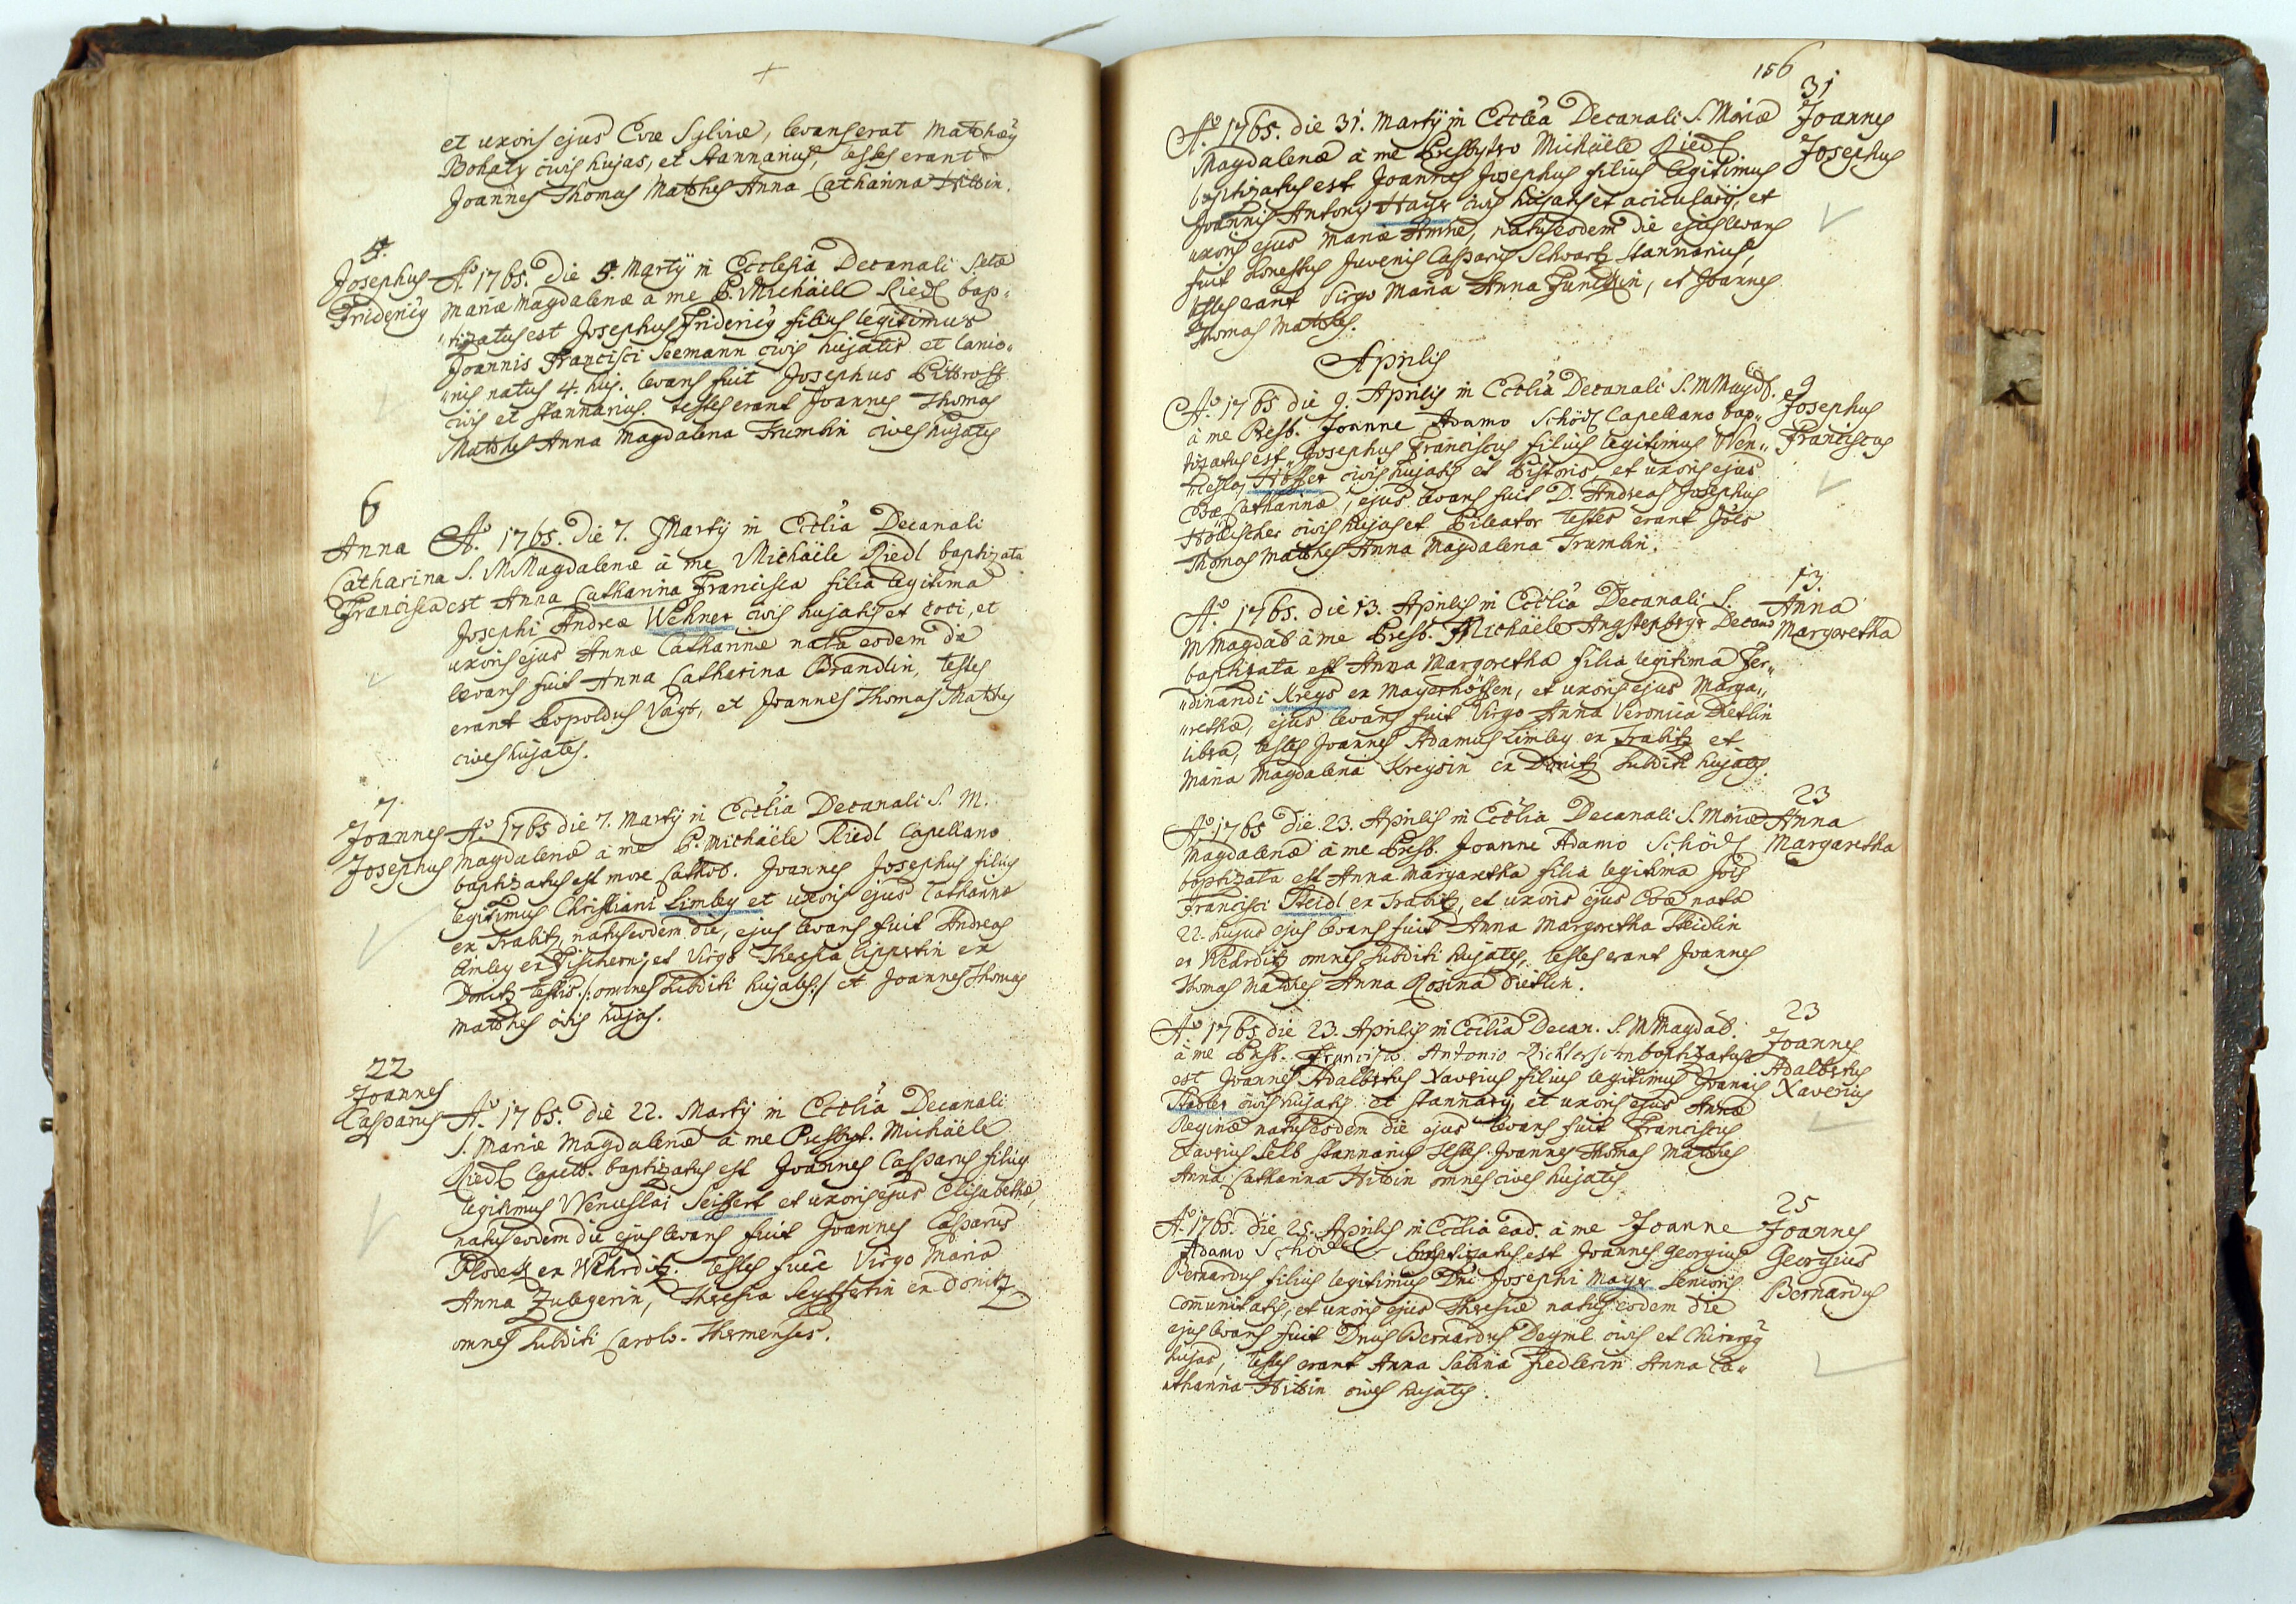 et uxoris ejus Evæ Sylviæ, levans erat Matthæg
Bohaty civis hujas, et stannarius, testes erant
Joannes Thomas Matthes Anna Catharina
4.
Josephus
Fridericg
Ao. 1765. die 4. Martÿ in Ecclesia Decanali S.ctæ
Mariæ Magdalenæ à me P. Michäele Riedl bap„
„tizatus est Josephus Fridericg filius legitimus
Joannis Francisci Seemann civis hujatis et lanio„
„nis natus 4. huj. levans fuit Josephus Pittroff
civis et stannarius. testes erant Joannes Thomas
Matthes Anna Magdalena Trumlin cives hujates
6
Anna
Catharina
Francisca
Ao. 1765. die 7. Martÿ in Ecclia Decanali
S. M Magdalenæ à me Michäele Riedl baptizata
est Anna Catharina Francisca filia legitima
Josephi Andreæ Wehner civis hujatis et coci, et
uxoris ejus Annæ Catharinæ nata eodem die
levans fuit Anna Catharina Brandlin, testes
erant Leopoldus Vagt, et Joannes Thomas Matthes
cives hujates.
7.
Joannes
Josephus
Ao. 1765 die 7. Martÿ in Ecclia Decanali S. M.
Magdalenæ à me P. Michäele Riedl Capellano
baptizatus est more Cathol. Joannes Josephus filius
legitimus Christiani Limley et uxoris ejus Catharinæ
ex Trabitz natus eodem die, ejus levans fuit Andreas
Limley ex Fischern, et Virgo Theresia Lippertin ex
Donitz testis /: omnes subditi hujates :/ et Joannes Thomas
Matthes civis hujas.
22
Joannes
Casparus
Ao. 1765. die 22. Martÿ in Ecclia Decanali
S. Mariæ Magdalenæ à me Presbyt. Michäele
Riedl Capell. baptizatus est Joannes Casparus filius
legitimus Wenceslai Seiffert et uxoris ejus Elisabethæ,
natus eodem die ejus levans fuit Joannes Casparus
Plodek ex Wehrditz. testes fuere Virgo Maria
Anna Zulegerin, Theresia Seyffertin ex Donitz
omnes subditi Carolo-Thermenses.
156
31
Joannes
Josephus
Ao. 1765. die 31. Martÿ in Ecclia Decanali S. Mariæ
Magdalenæ à me Presbytero Michäele Riedl
baptizatus est Joannes Josephus filius legitimus
Joannis Antonÿ Hayr civis hujatis et acicularÿ, et
uxoris ejus Mariæ Annæ, natus eodem die ejus levans
fuit honestus Juvenis Casparus Schwartz stannarius,
testes erant Virgo Maria Anna Funckin, et Joannes
Thomas Matthes.
Aprilis
9
Josephus
Franciscus
Ao. 1765 die 9. Aprilis in Ecclia Decanali S. M Magdl.
à me Presb. Joanne Adamo Schödl Capellano bap„
tizatus est Josephus Franciscus filius legitimus Wen„
„ceslai Höffer civis hujatis et Pistoris et uxoris ejus
Evæ Catharinæ, ejus levans fuit D. Andreas Josephus
Höllischer civis hujas et Pileator testes erant Jões
Thomas Matthes Anna Magdalena Trumlin.
13.
Anna
Margaretha
Ao. 1765. die 13. Aprilis in Ecclia Decanali S.
M Magdal à me Presb. Michäele Decano
baptizata est Anna Margaretha filia legitima Fer„
„dinandi Kreys ex Mayerhöffen, et uxoris ejus Marga„
„rethæ, ejus levans fuit Virgo Anna Veronica Dietlin
libera, testes Joannes Adamus Limley ex Trabitz et
Maria Magdalena Kreysin ex Donitz subditi hujates.
23
Anna
Margaretha
Ao. 1765 die 23. Aprilis in Ecclia Decanali S. Mariæ
Magdalenæ à me Presb. Joanne Adamo Schödl
baptizata est Anna Margaretha filia legitima Jois
Francisci Steidl ex Trabitz, et uxoris ejus Evæ nata
22. hujus ejus levans fuit Anna Margaretha Steidlin
ex Wehrditz omnes subditi hujates, testes erant Joannes
Thomas Matthes Anna Rosina Dietlin.
23
Joannes
Adalbertus
Xaverius
Ao. 1765 die 23. Aprilis in Ecclia Decan. S. M Magdal.
à me Presb. Francisco Antonio baptizatus
est Joannes Adalbertus Xaverius filius legitimus Joannis
Stadler civis hujatis et stannarÿ, et uxoris ejus Annæ
Reginæ natus eodem die ejus levans fuit Franciscus
Xaverius Selb stannarius testes Joannes Thomas Matthes
Anna Catharina omnes cives hujates
25
Joannes
Georgius
Bernardus
Ao. 1765. die 25. Aprilis in Ecclia ead. à me Joanne
Adamo Schödl baptizatus est Joannes Georgius
Bernardus filius legitimus Dni Josephi Mayer Senioris
Comunitatis, et uxoris ejus Theresiæ natus eodem die
ejus levans fuit Dnus Bernardus Deyml civis et Chirurgg
hujas, testes erant Anna Sabina Fiedlerin Anna Ca„
„tharina cives hujates.